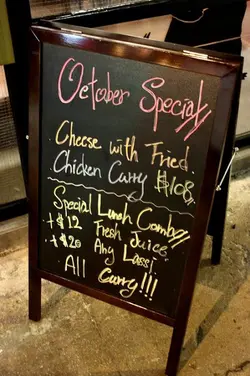 October Special//
Cheese with Fried
Chicken Curry $108
Special Lunch Combo//
+$12 Fresh Juice
+$20 Any Lassi
All Curry!!!